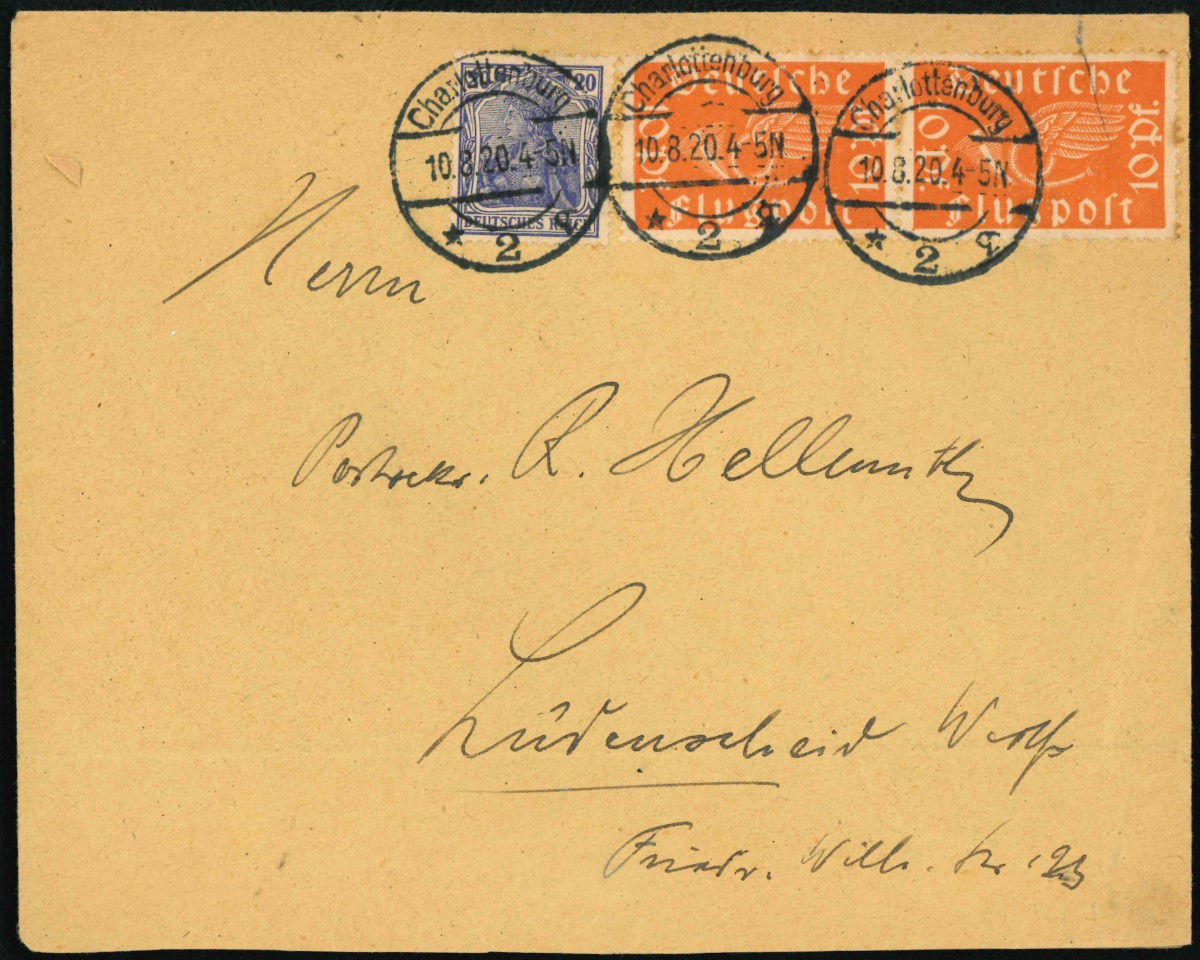 Charlottenburg
10.8.20.4-5N
* 2 q
20
DEUTSCHES REICH
Charlottenburg
10.8.20.4-5N
* 2 q
Deutsche
10 Pf.
Flugpost
Charlottenburg
10.8.20.4-5N
* 2
Deutsche
10 Pf.
Flugpost
Herrn
R. Hellmuth
Lüdenscheid Westf
Friedr. Wilh. Str